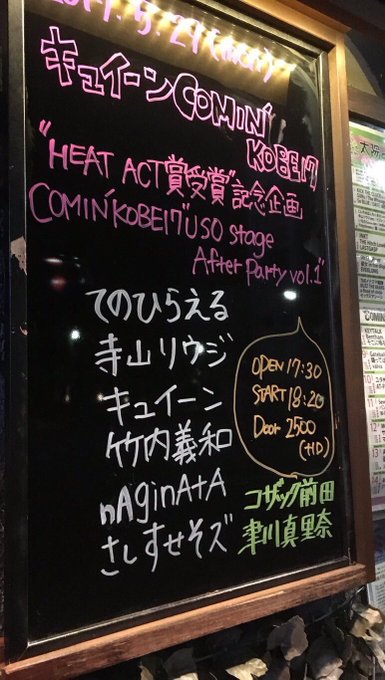 2017.5.29(mon)
キュイーンCOMIN'
KOBE17
"HEAT ACT賞受賞"記念企画
COMIN'KOBE17"USO stage
After Party vol.1"
てのひらえる
寺山リウジ
キュイーン
竹内義和
nAginAtA
さしすせそズ
OPEN 17:30
START 18:20
Door 2500
(+1D)
コザック前田
津川真里奈